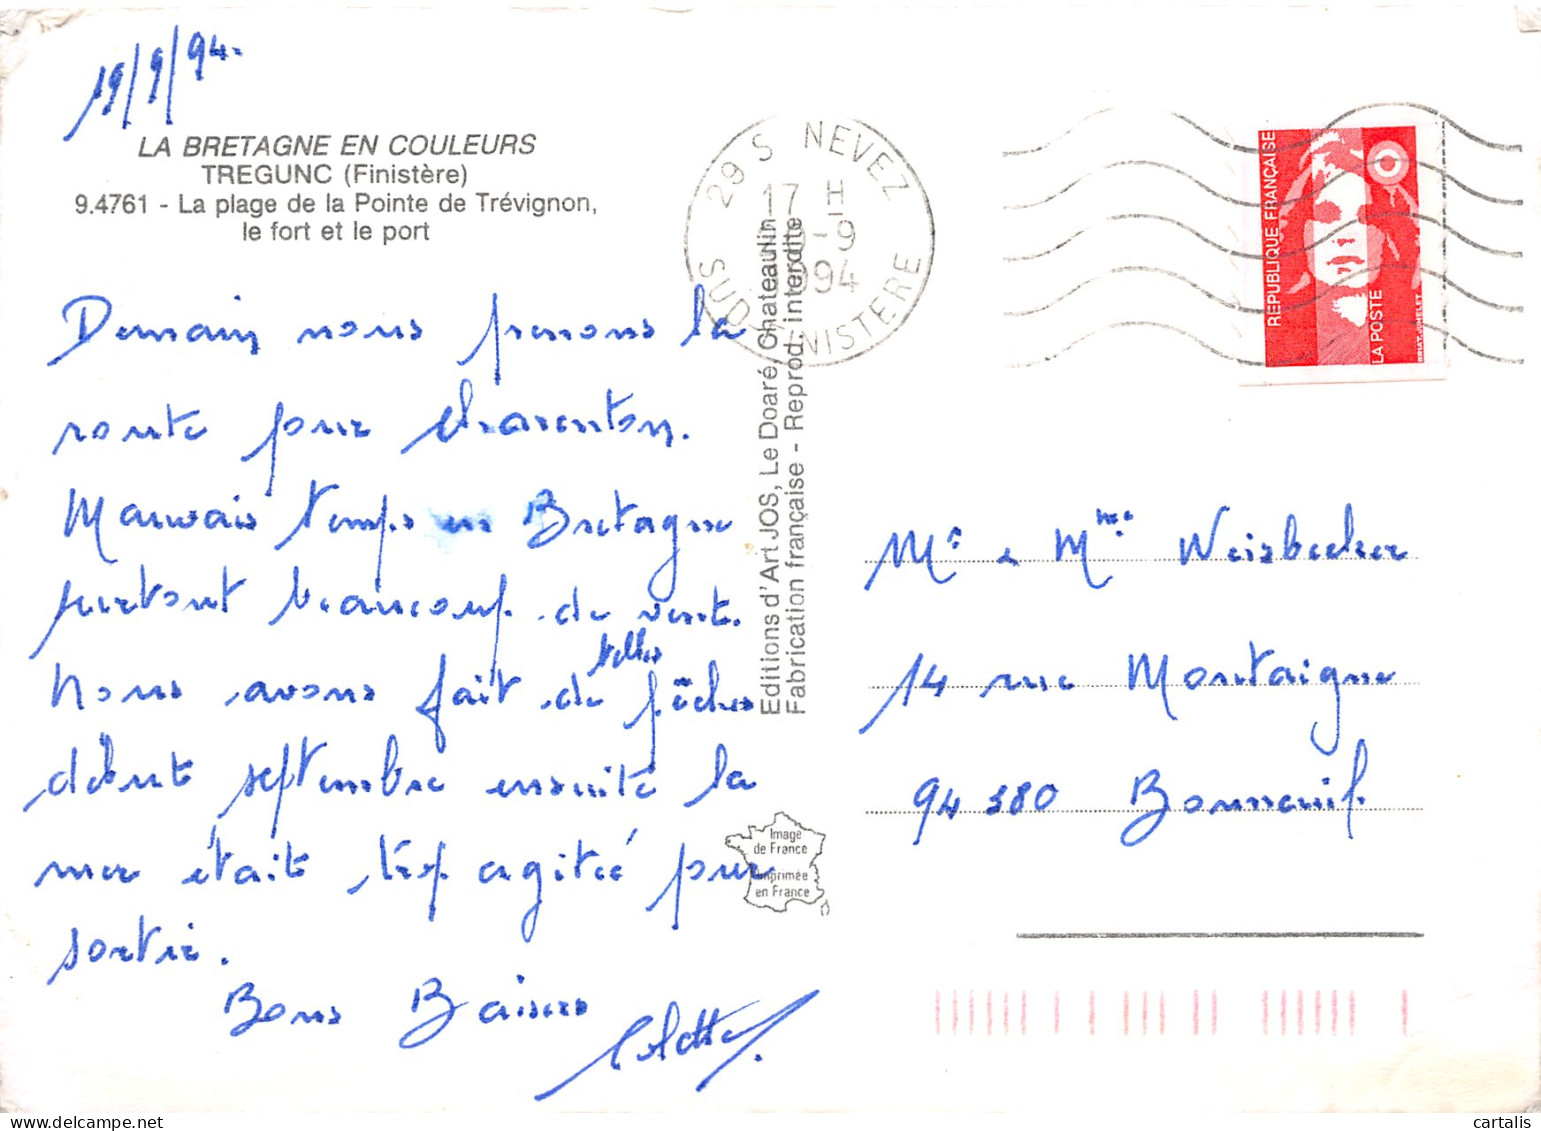 19/9/94.
LA BRETAGNE EN COULEURS
TREGUNC (Finistère)
9.4761 - La plage de la Pointe de Trévignon,
le fort et le port
Demain nous prenons la
route pour charenton.
Mauvais temps en Bretagne
surtout beaucoup de vent.
Nous avons fait de belles pêches
début septembre ensuite la
mer était trop agitée pour
sortir.
Bons Baisers
Colette
Editions d'Art JOS, Le Doaré, Chateaulin
Fabrication française - Reprod. interdite
29 S NEVEZ
17 H
-9
1994
SUD FINISTERE
REPUBLIQUE FRANÇAISE
LA POSTE
Mr e Mme Weisbecker
14 rue Montaigne
94380 Bonneuil.
Image
de France
Imprimée
en France
cartalis